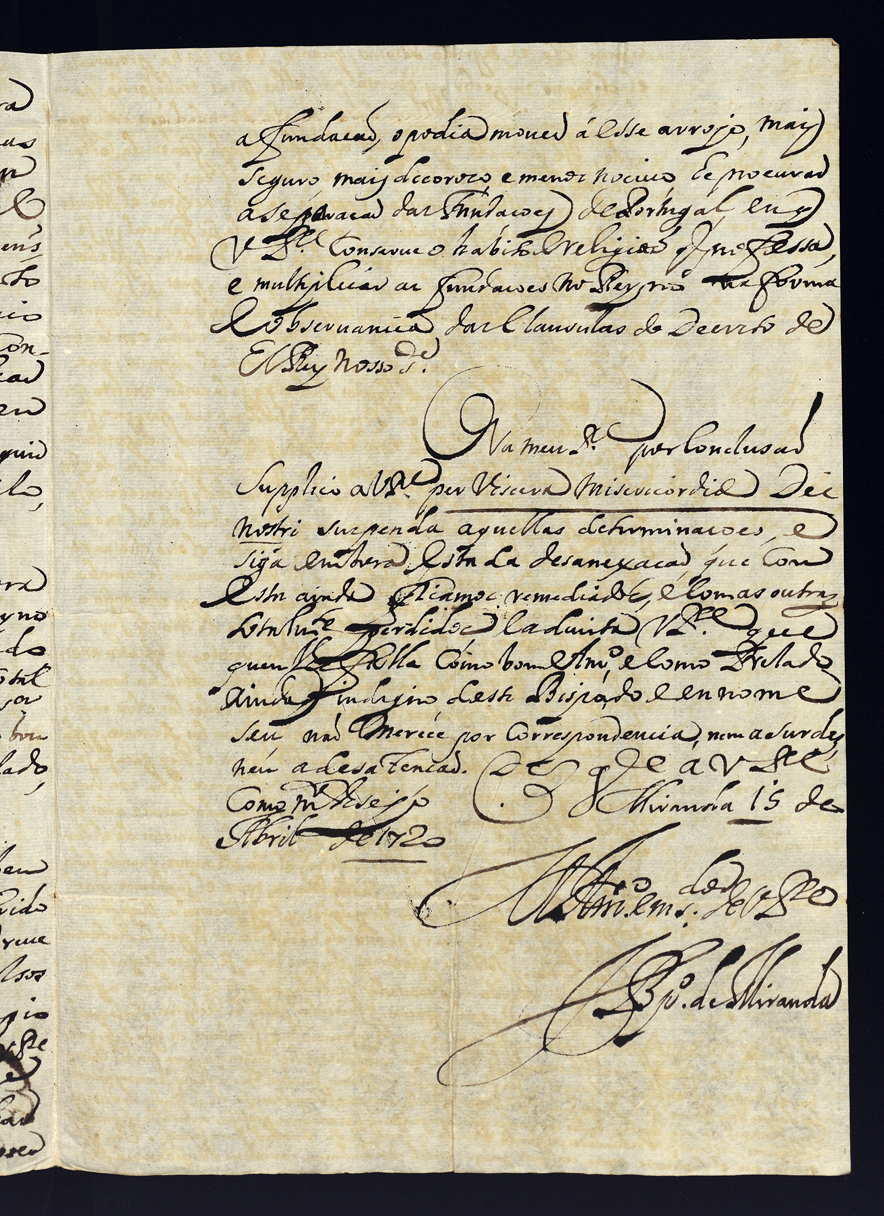 a fundacaõ, o podia mover á esse arrojo, mais
seguro mais decoroso e menos nocivo, he procurar
a separacaõ das fundacoes de Portugal, em q̃
V. Rma. Conserve o habito e religiaõ q̃ professa,
e multiplicar as fundacoes no Reyno na forma
e observancia das Clausulas do Decreto de
El Rey Nosso Sr.
meu Sr. por Conclusaõ
Supplico a V. Rma. per Viscera Misericordiæ Dei
nostri suspenda aquellas determinacoes, e
siga embora esta da desanexacaõ, que com
esta ainda ficamos remediados, e com as outras
totalmte. perdidos e a divirta V. Rma. que
quem lhe falla Como bom Amo. e como Prelado
ainda q̃ indigno deste Bispado e em nome
seu naõ Merece por Correspondencia, nem a surdez
nem a desatencaõ. Ds gde a V Rma
Como mto. desejo Miranda 15 de
Abril de 1720
Amo. em s. de V Rma
Bpo. de Miranda
ra
n
to
cio
Con-
ra
yno
do
bou
lado,
bem
vido
reve
gio